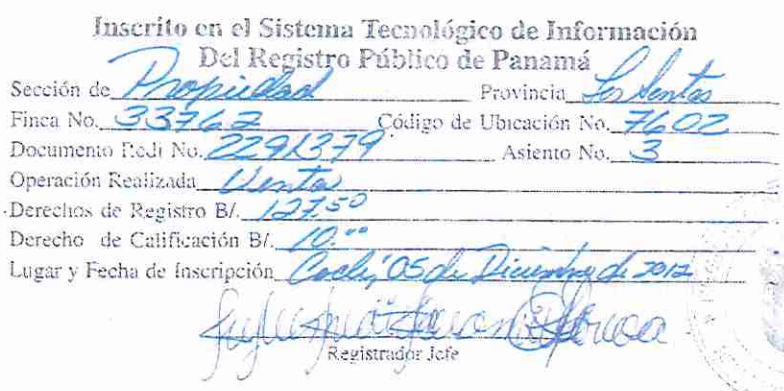 Inscrito en el Sistema Tecnológico de Información
Del Registro Público de Panamá
Sección de Propiedad Provincia Los Santos
Finca No. 33767 Código de Ubicación No. 7602
Documento Redi No. 2291379 Asiento No. 3
Operación Realizada Venta
Derechos de Registro B/. 127.50
Derecho de Calificación B/. 10.00
Lugar y Fecha de Inscripción Cocle, 05 de Diciembre de 2012
Registrador Jefe